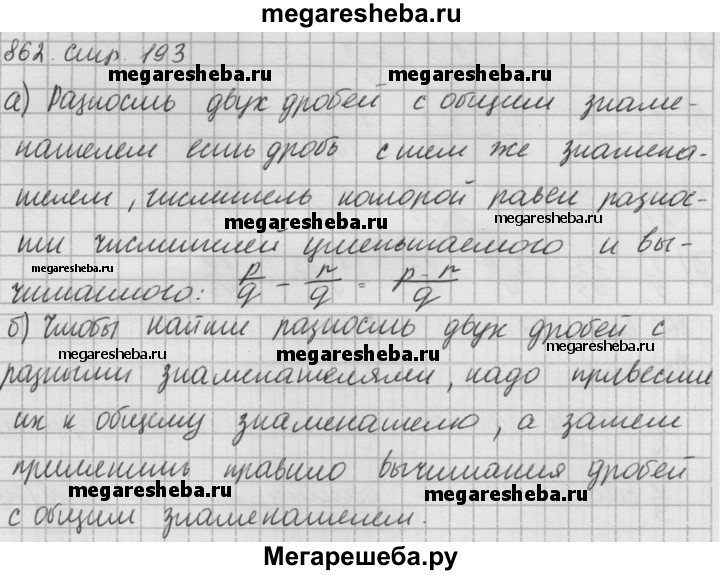 megaresheba.ru
862. стр. 193
megaresheba.ru megaresheba.ru
а) Разность двух дробей с общим знаме-
нателем есть дробь с тем же знамена-
телем, числитель которой равен разнос-
megaresheba.ru megaresheba.ru
ти числителей уменьшаемого и вы-
megaresheba.ru megaresheba.ru
читаемого: p/q - r/q = p-r/q
б) Чтобы найти разность двух дробей с
megaresheba.ru megaresheba.ru
разными знаменателями, надо привести
их к общему знаменателю, а затем
применить правило вычитания дробей
megaresheba.ru megaresheba.ru
с общим знаменателем.
Мегарешеба.ру